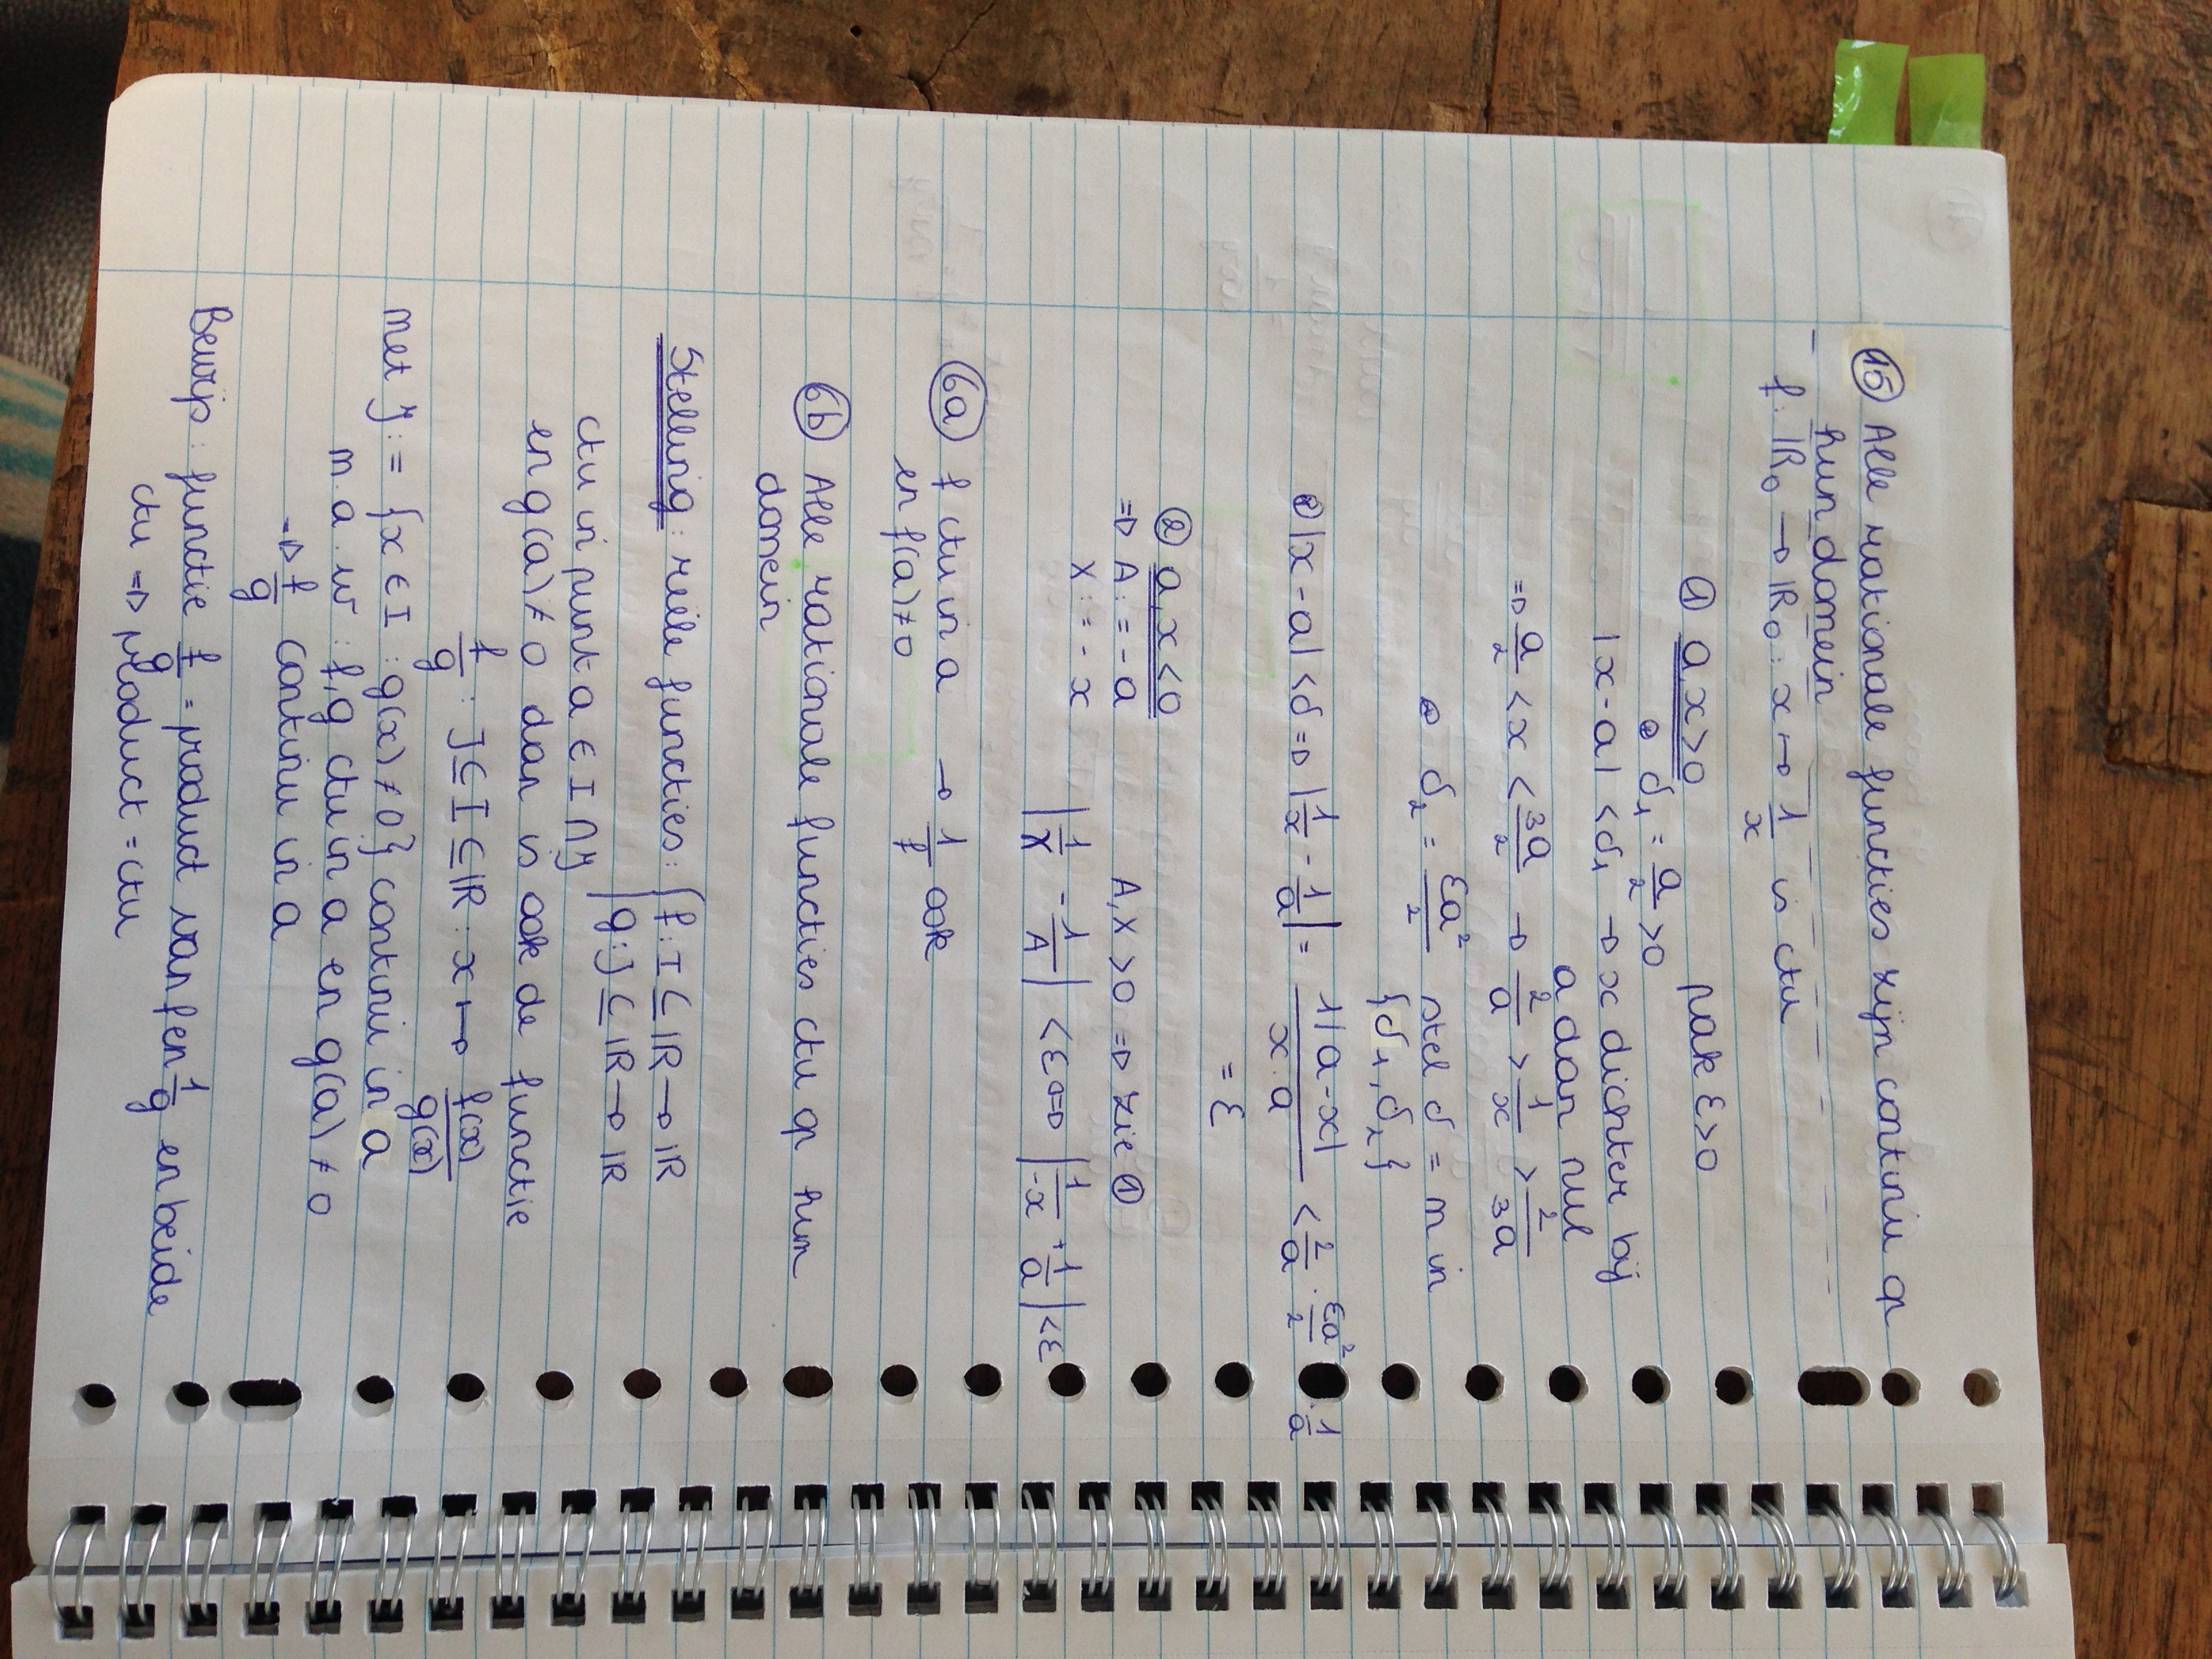 15 Alle rationale functies zijn continu op
hun domein
f: ℝ₀ → ℝ₀ : x ↦ 1/x is ctu
① a, x > 0 pak ε > 0
• δ₁ = a/2 > 0
|x - a| < δ₁ → x dichter bij
a dan nul
⇒ a/2 < x < 3a/2 → 2/a > 1/x > 2/3a
• δ₂ = εa²/2 stel δ = min
{δ₁, δ₂}
• |x - a| < δ ⇒ |1/x - 1/a| = 1|a - x|/x.a < 2/a . εa²/2 . 1/a
= ε
② a, x < 0
⇒ A := -a A, X > 0 ⇒ zie ①
X := -x |1/X - 1/A| < ε ⇔ |1/-x + 1/a| < ε
6a f ctu in a → 1/f ook
en f(a) ≠ 0
6b Alle rationale functies ctu op hun
domein
Stelling : reële functies : { f : I ⊆ ℝ → ℝ
g : J ⊆ ℝ → ℝ
ctu in punt a ∈ I ∩ J
en g(a) ≠ 0 dan is ook de functie
f/g : J ⊆ I ⊆ ℝ : x ↦ f(x)/g(x)
met J := {x ∈ I : g(x) ≠ 0} continu in a
m.a.w : f,g ctu in a en g(a) ≠ 0
→ f/g continu in a
Bewijs : functie f/g = product van f en 1/g en beide
ctu ⇒ product = ctu